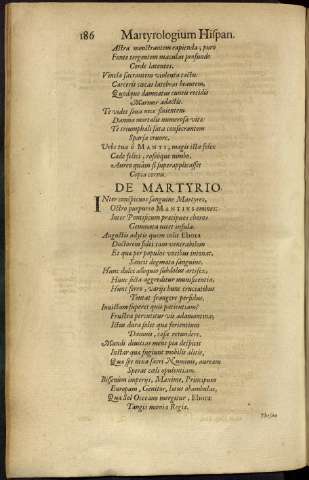 186 Martyrologium Hispan.
Astra monstrantem rapienda; puro
Fonte tergentem maculas profundo
Corde latentes.
Vincla sacrantem violenta tactu
Carceris cæcas latebras beantem,
Quódque damnatus cunctis recidis
Marmor adactis.
Te videt sæua nece finientem
Damna mortalis numerosa vitæ
Te triumphali sata consecrantem
Sparsa cruore.
Vrbs tua ô MANTI, magis icta soles
Cade felici, roseóque nimbo,
Aureo quàm si superapplicasset
Copia cornu.
DE MARTYRIO.
INter conspicuos sanguine Martyres,
Ostro purpureo MANTIVS emines:
Inter Pontificum præcipuos choros
Gemmata nitet insula.
Augustis adytis quem colit Ebora
Doctorem fidei tam venerabilem
Et quæ per populos vocibus intonat,
Sancit dogmata sanguine.
Hunc dulci alloquio subdolus artifex,
Hunc ficta aggreditur munificentia,
Hunc ferro, varijs hunc cruciatibus
Tentat frangere perfidus.
Inuictam superet quis patientiam?
Frustra percutitur vis adamantina,
Ictus dura solet quæ ferientium
Damnis, cæsa retundere.
Mundi diuitias mens pia despicit
Instar quæ fugiunt mobilis alitis,
Quo sit nixa sacri Numinis, auream
Sperat cœli opulentiam.
Bissenûm imperijs, Maxime, Principum
Europam, Genitor, lætus obambulas,
Qua Sol Oceano mergitur, Eboræ
Tangis mœnia Regiæ.